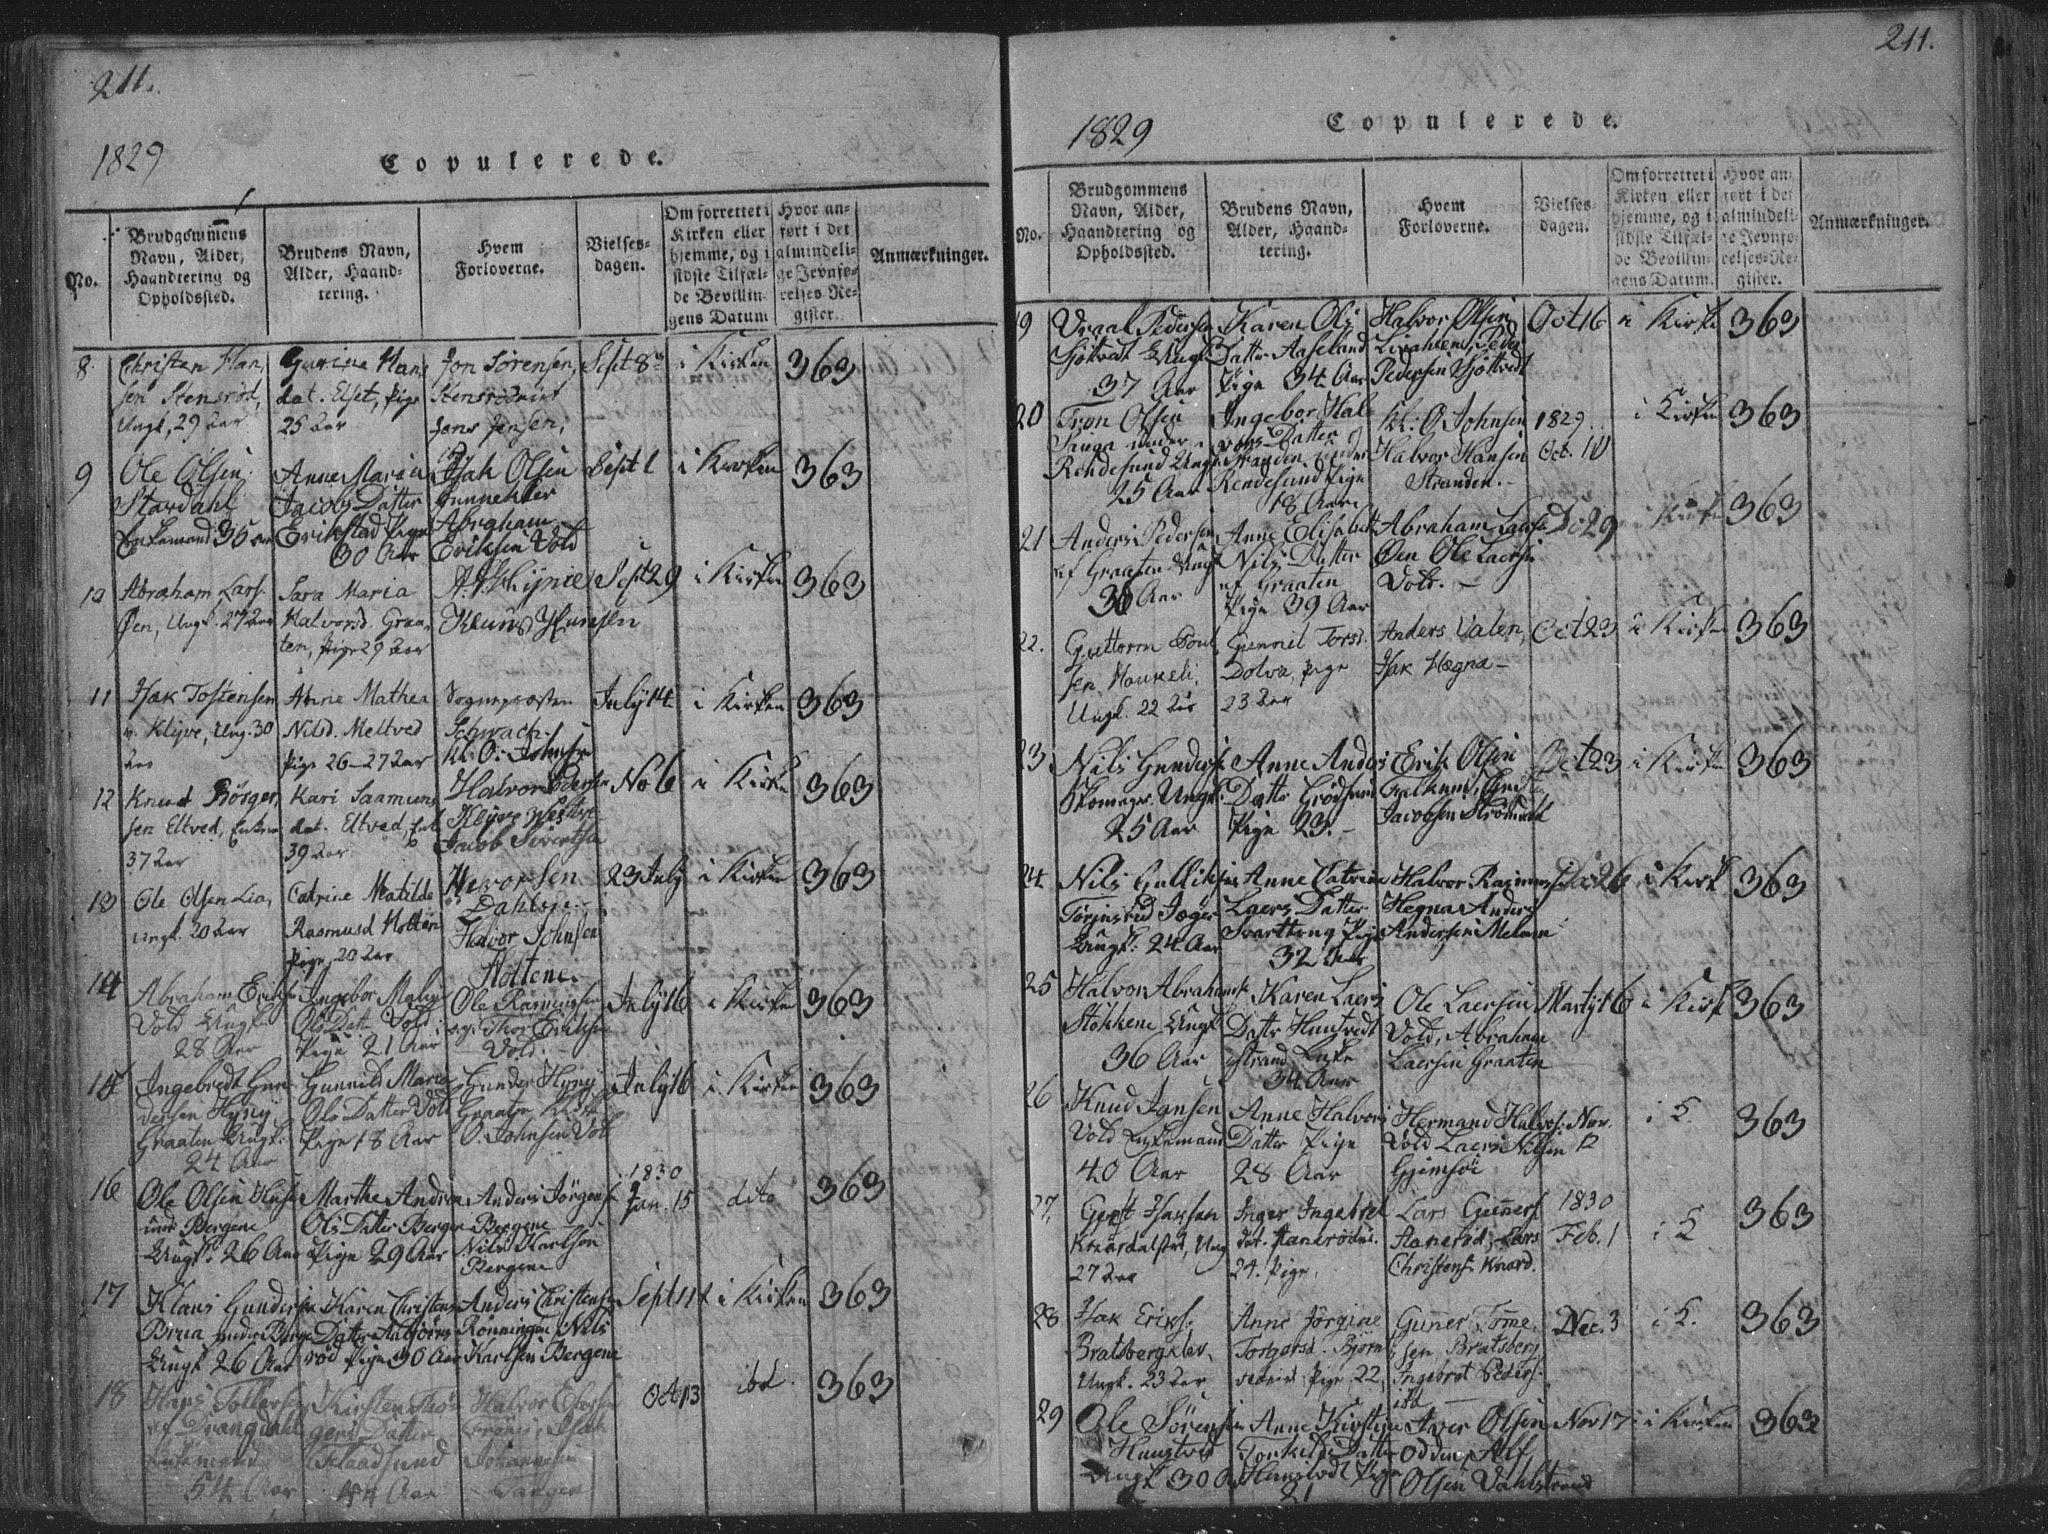 211.
1829
Copulerede.
No.
Brudgommens Navn, Alder, Haandtering og Opholdssted.
Brudens Navn, Alder, Haandtering.
Hvem Forloverne.
Vielsesdagen.
Om forrettet i Kirken eller hjemme, og i sidste Tilfælde Bevillingens Datum
Hvor anført i det almindelige Jevnførelses-Register.
Anmærkninger.
8. Christen Han
sen Stensrød,
Ungk, 29 aar
Hans
dat. Elset, Pige
25 aar
Jon Sørensen,
Jens Jensen,
Sept 8
i Kirken
363
9 Ole Olsen
Stardahl
Enkemand 35 aar
Anne Maria
Jacobs Datter
Erikstad Pige
30 Aar
Isak Olsen
Abraham
Eriksen Vold
Sept 1
i Kirken
363
10 Abraham Lars.
Øen, Ungk. 27 aar
Sara Maria
Halvorsd. Graa
ten, Pige 29 aar
Sept 29
i Kirken
363
11 Isak Tostensen
v. Klyve, Ung. 30
aar
Anne Mathea
Nilsd. Meltved
Pige 26-27 aar
Sognepræsten
Schwach
kl. O. Johnsen
July 14
i Kirken
363
12 Knud Børger
sen Eltved, Enkem
37 aar
Kari Saamuns
dat. Eltved, Enk
39 aar
Halvor Pedersen
Klyve
Jacob Sivertsen
No 6
i Kirke
363
13 Ole Olsen Lia,
Ungk. 20 aar
Catrine Matilde
Rasmusd Hotten
Pige 20 aar
Dahlen
Halvor Johnsen
Hottene
23 July
i Kirken
363
14 Abraham Eriksen
Vold Ungk
28 Aar
Ingebor Maria
Ols Datt. Vold
Pige 21 Aar
Ole Rasmusen
og Thor Eriksen
Vold.
July 16
i Kirken
363
15 Ingebredt Gun
dersen Hyni
Graaten Ungk.
24 Aar
Gunnild Maria
Ols Datter Vold
Pige 18 Aar
Gunder Hyni
Graaten
O. Johnsen Vold
July 16
i Kirken
363
16 Ole Olsen
Bergene
Ungk. 26 Aar
Marthe Andrea
Ols Datter Bergen
Pige 29 Aar
Anders Jørgensen
Bergene
Nils Karlsen
Bergene
1830
Jan. 15
dito
363
17 Klaus Gundersen
Brua under Berge
Ungk 26 Aar
Karen Christens
Datter Asbjørns
rød Pige 30 Aar
Anders Christensen
Rønningen Nils
Karlsen Bergene
Sept 11
i Kirken
363
18 Hans Tollefsen
af Drangdahl
Enkemand
54 Aar
Kirsten
Datter
Flaadsund
44 Aar
Halvor
Isak
Johannesen
Tangen
Oct 13
ibd.
363
211.
1829
Copulerede.
No.
Brudgommens Navn, Alder, Haandtering og Opholdssted.
Brudens Navn, Alder, Haandtering.
Hvem Forloverne.
Vielsesdagen.
Om forrettet i Kirken eller hjemme, og i sidste Tilfælde Bevillingens Datum.
Hvor anført i det almindelige Jevnførelses-Register.
Anmærkninger.
19 Vraal Pedersen
Sjøtvedt Ungk
37 Aar
Karen Ols
Datter Aaseland
Pige 34 Aar
Halvor Olsen
Peder
Pedersen Sjøttvedt
Oct 16
i Kirke
363
20 Tron Olsen
under
Rendesund Ungk
25 Aar
Ingebor Hal
vors Datter
Stranden under
Rendesund Pige
18 Aar
kl: O Johnsen
Halvor Hansen
Stranden.
1829
Oct. 14
i Kirken
363
21 Anders Pedersen
af Graaten Ungk
36 Aar
Anne Elisabeth
Nils Datter
af Graaten
Pige 39 Aar
Abraham Laersen
Øen Ole Laersen
Vold.
29
i Kirken
363
22. Guttorm Poul
sen Haukeli,
Ungk. 22 aar
Gunnil Torsd.
Dolva, Pige
23 aar
Anders Valen,
Isak Hegna
Oct 23
i Kirken
363
23 Nils Gunders
Skomager Ungk.
25 Aar
Anne Anders
Datter
Pige 23.
Erik Olsen
Falkum,
Jacobsen Strømdal
Oct 23
i Kirken
363
24. Nils Gulliksen
Jæger
Ungk. 24 Aar
Anne Catrine
Laers Datter
Svarttong Pige
32 Aar
Halvor Rasmussen
Hegna Anders
Andersen Melum
26
i Kirk
363
25 Halvor Abrahamsen
Støkkene Ungk
36 Aar
Karen Laers
Datter Hustvedt
strand Enke
34 Aar
Ole Laersen
Vold, Abraham
Laersen Graaten
6
i Kirk
363
26 Knud Jansen
Vold Enkemand
40 Aar
Anne Halvors
Datter Pige
28 Aar
Hermand Halvors.
Vold Laers Nilsen
Gjemsøi
Nov.
12
i K.
363
27. Gert Hansen
Knardalstrd, Ung
27 aar
Inger Ingebret
dat. Hanerødns.
24. Pige.
Lars Guners
Hanerød, Lars
Christens. Knard.
1830
Feb. 1
i K
363
28 Isak Eriks.
Bratsbergklev,
Ungk. 23 aar
Anne Jørgine
Torbjørsd. Bjørn
Pige, 22
Guner Tome
sen Bratsberg
Ingebret Peders.
ibd
Dec. 3
i K.
363
29 Ole Sørensen
Hougtved
Ungk 30
Anne Kirstine
Torkilds Datter
Pige
21
Iver Olsen
Odden, Alf
Olsen Vahlstrand
Nov 17
i Kirken
363